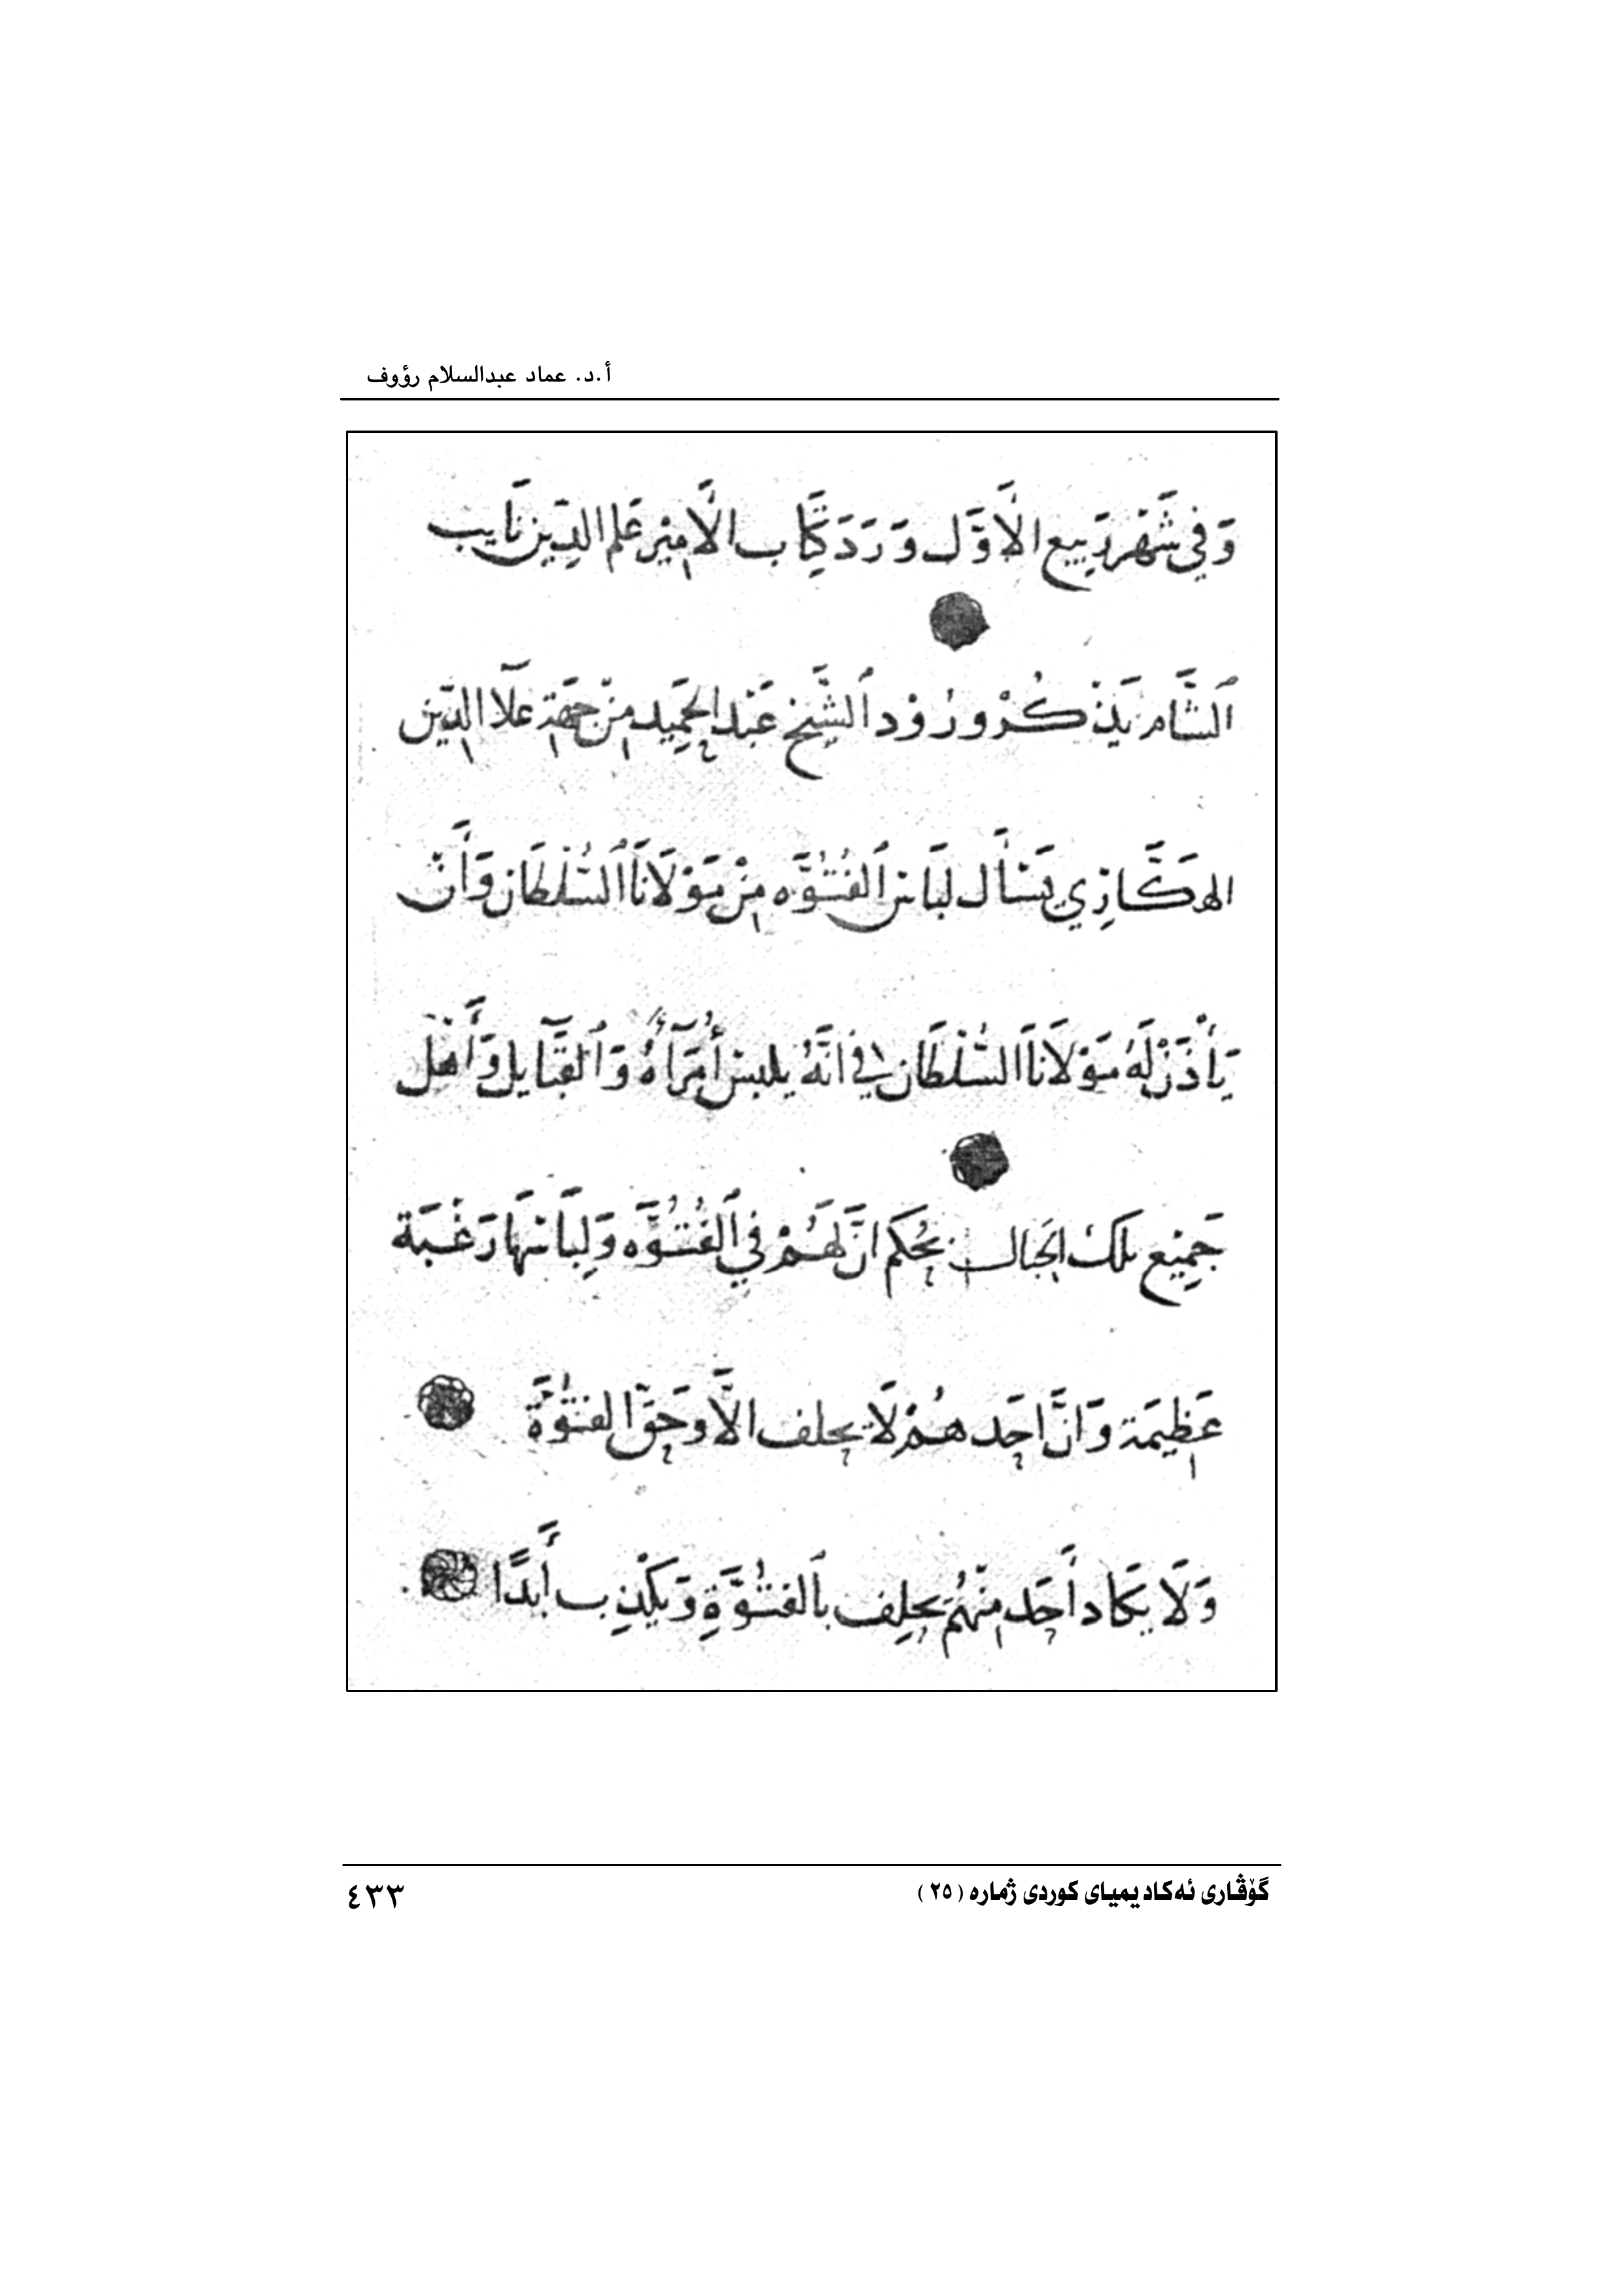 أ.د. عماد عبدالسلام رؤوف
وَفي شَهْر رَبيع الأَوَّل وَرَدَ كِتَاب الأَمِيْر عَلم الدِّين نَايب
ٱلشَّام يَذْكُرْ وُرُوْد ٱلشَّيخ عَبْد الحَمِيد مِنْ جهَة عَلَآ الدِّين
الهَكَّارِي يَسْأَل لبَاس ٱلفُتُوَّه مِنْ مَوْلَانَا ٱلسُّلْطَان وَأَنْ
يَأْذَنْ لَهُ مَوْلَانَا السُّلْطَان في انَّهُ يلبس أُمَرَآءُهُ وَٱلقَبَآيل وَأَهْل
جَمِيْع تلكَ الجَبال بحُكم انَّ لهَمُ في ٱلفُتُوَّه وَلِبَاسهَا رَغْبَة
عَظِيمَة وَانَّ احَدهُمْ لَا يحلف الَّا وحَقّ الفتُوَّة
وَلَا يَكَاد أَحَد مِنْهُمْ يحلِف بٱلفتُوَّةِ وَيَكْذِب أَبَدًا
گۆڤاری ئەکادیمیای کوردی ژمارە (٢٥)
٤٣٣